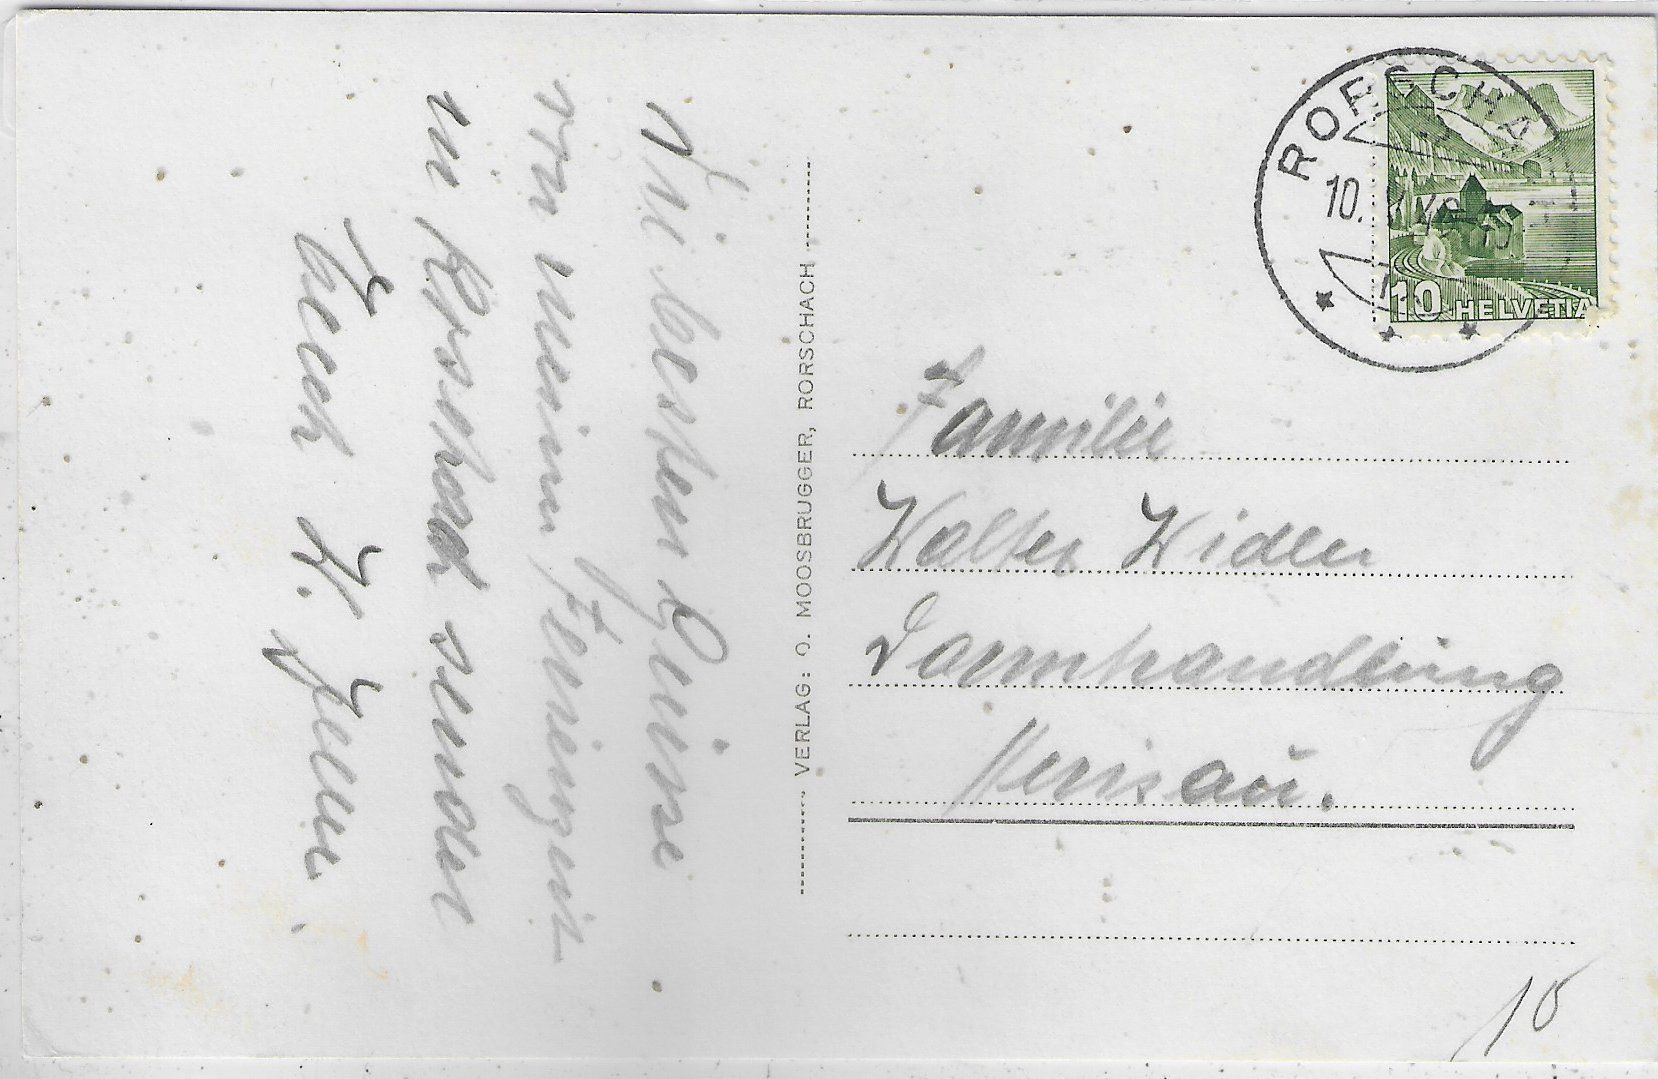 Die besten Grüsse
von meinen Ferien
in Rorschach sendet
Euch W.
VERLAG: O. MOOSBRUGGER, RORSCHACH
RORSCHA
10.
10 HELVETIA
Familie
Walter Widler
Darmhandlung
Herisau.
10